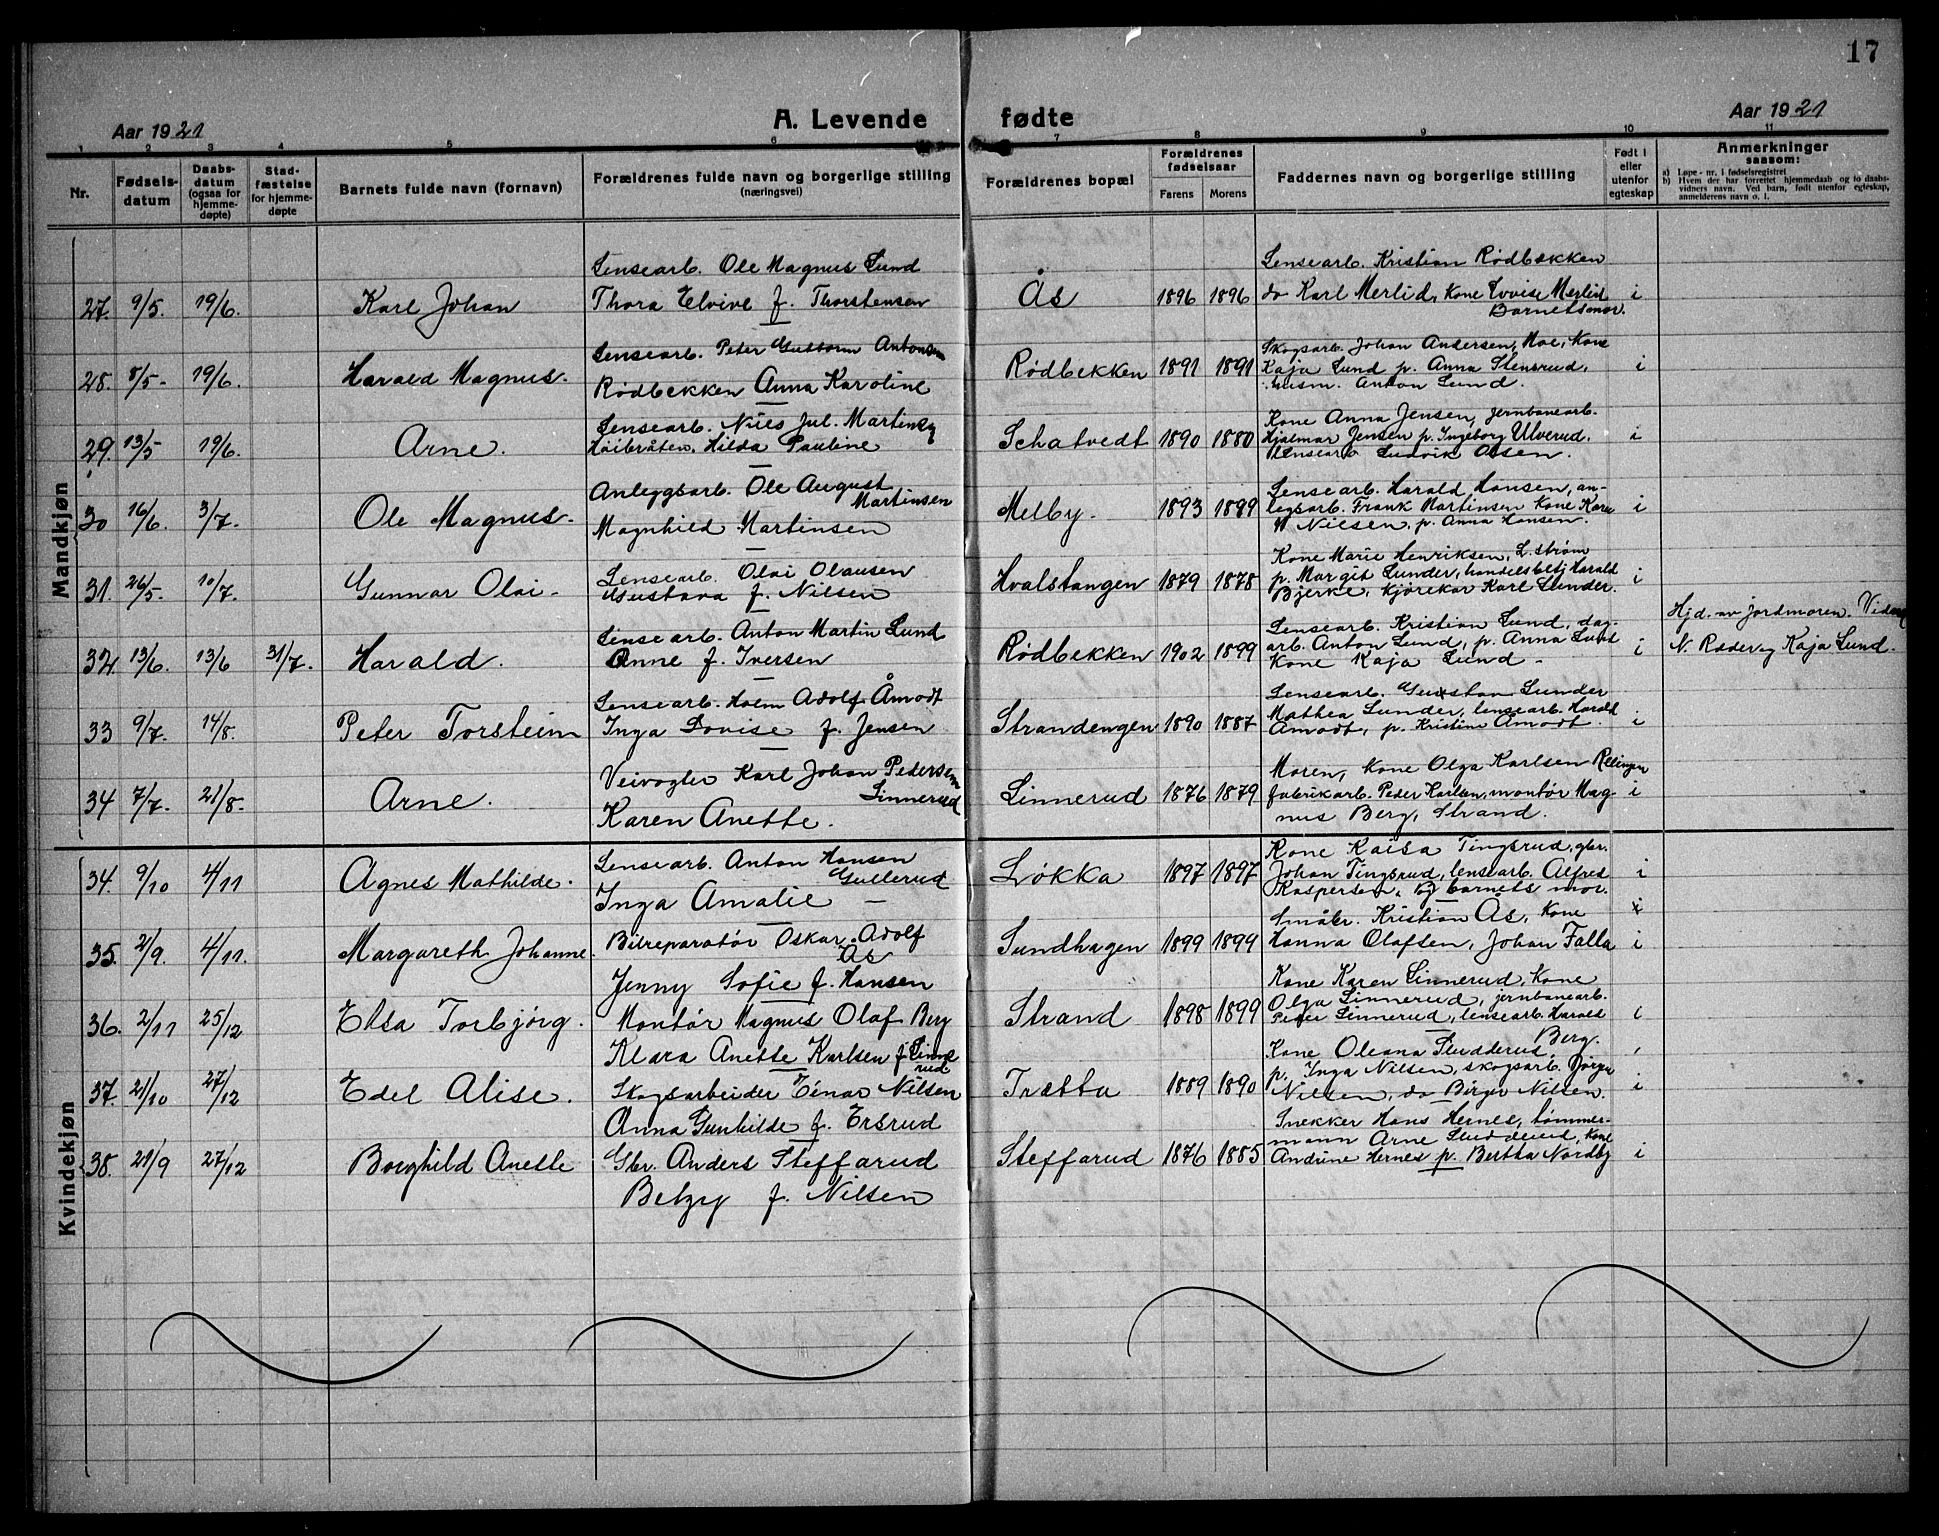 17
A. Levende fødte
Aar 1921
Aar 1921
1 2 3 4 5 6 7 8 9 10 11
Nr.
Fødsels-
datum
Daabs-
datum
(ogsaa for
hjemme-
døpte)
Stad-
fæstelse
for hjemme-
døpte
Barnets fulde navn (fornavn)
Forældrenes fulde navn og borgerlige stilling
(næringsvei)
Forældrenes bopæl
Forældrenes
fødselsaar
Farens Morens
Faddernes navn og borgerlige stilling
Født i
eller
utenfor
egteskap
Anmerkninger
saasom:
a) Løpe-nr. i fødselsregistret
b) Hvem der har forrettet hjemmedaab og to daabs-
vidners navn. Ved barn, født utenfor egteskap,
anmelderens navn o. l.
Mandkjøn
27. 9/5. 19/6. Karl Johan
Lensearb. Ole Magnus Lund
Thora Elvine f. Thorstensen
Ås 1896 1896
Lensearb. Kristian Rødbekken
do Karl Merlid, Kone Lovise Merlid
Barnets mor.
i
28. 8/5- 19/6. Harald Magnus.
Lensearb. Peter Guttorm Antonsen
Rødbekken Anna Karoline
Rødbekken 1891 1891
Skogsarb. Johan Andersen, Moe, Kone
Kaja Lund p. Anna Stensrud,
husm. Anton Lund.
i
29. 13/5 19/6. Arne.
Lensearb. Niels Jul. Martinsen
Høibråten, Hilda Pauline
Schatvedt 1890 1880
Kone Anna Jensen, jernbanearb.
Hjalmar Jensen p. Ingeborg Ulverud,
Lensearb Ludvik Olsen.
i
30 16/6. 3/7. Ole Magnus.
Anleggsarb. Ole August
Martinsen
Magnhild Martinsen
Melby. 1893 1899
Lensearb. Harald Hansen, an-
legsarb. Frank Martinsen Kone Karen
Nilsen, p. Anna Hansen.
i
31. 26/5. 10/7. Gunnar Olai.
Lensearb. Olai Olausen
Gustava f. Nilsen
Hvalstangen 1879 1878
Kone Marie Henriksen, L.strøm
p. Margit Lunder, handelsbetj Harald
Bjerke, kjørekar Karl Lunder.
i
32. 13/6. 13/6 31/7. Harald.
Lensearb. Anton Martin Lund
Anne f. Iversen
Rødbekken 1902 1899
Lensearb. Kristian Lund, dag-
arb. Anton Lund, p. Anna Lund
Kone Kaja Lund -
i
Hjd. av jordmoren
N. Ræder og Kaja Lund.
33 9/7. 14/8. Peter Torstein
Lensearb. Holm Adolf Åmodt
Inga Lovise f. Jensen
Strandengen 1890 1887
Lensearb. Gustav Lunder
Mathea Lunder, lensearb. Harald
Åmodt, p. Kristine Åmodt.
i
34 7/7. 21/8. Arne.
Veivogter Karl Johan Pedersen
Linnerud
Karen Anette.
Linnerud 1876 1879
Moren, Kone Olga Karlsen Rellingen
fabrikarb. Peder Karlsen, montør Mag-
nus Berg, Strand.
i
Kvindekjøn
34. 9/10 4/11 Agnes Mathilde.
Lensearb. Anton Hansen
Gullerud
Inga Amalie -
Løkka 1897 1897
Kone Kaisa Tingsrud, gbr.
Johan Tingsrud, lensearb. Alfred
Kaspersen, og barnets mor.
i
35. 2/9. 4/11. Margareth Johanne.
Bilreparatør Oskar Adolf
Ås
Jenny Sofie f. Hansen
Sundhagen 1899 1899
Småbr. Kristian Ås, Kone
Hanna Olafsen, Johan Falla
i
36. 2/11 25/12 Elsa Torbjørg.
Montør Magnus Olaf Berg
Klara Anette Karlsen f. Linne
rud
Strand 1898 1899
Kone Karen Linnerud, Kone
Olga Linnerud, jernbanearb.
Peder Linnerud, lensearb. Harald
Berg.
i
37. 21/10 27/12 Edel Alise.
Skogsarbeider Einar Nilsen
Anna Gunhilde f. Ersrud
Trætta 1889 1890
Kone Oleana Sludderud,
p. Inga Nilsen, skogsarb. Jørgen
Nilsen, do Birger Nilsen.
i
38. 21/9 27/12 Borghild Anette
Gbr. Anders Steffarud
Betzy f. Nilsen
Steffarud 1876 1885
Snekker Hans Hernes, tømmer-
mann Arne Kone
Andrine Hernes p. Bertha Nordby
i